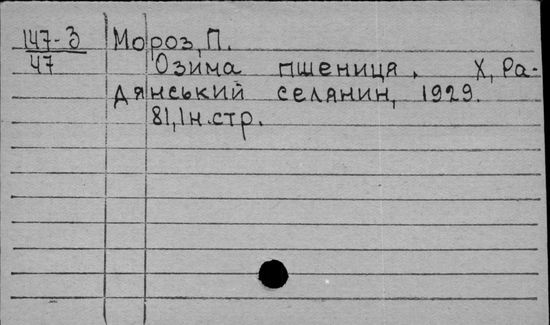 147-3 Мороз, П.
47
Озима пшениця. Х, Ра-
дянський селянин, 1929.
81, 1н. стр.